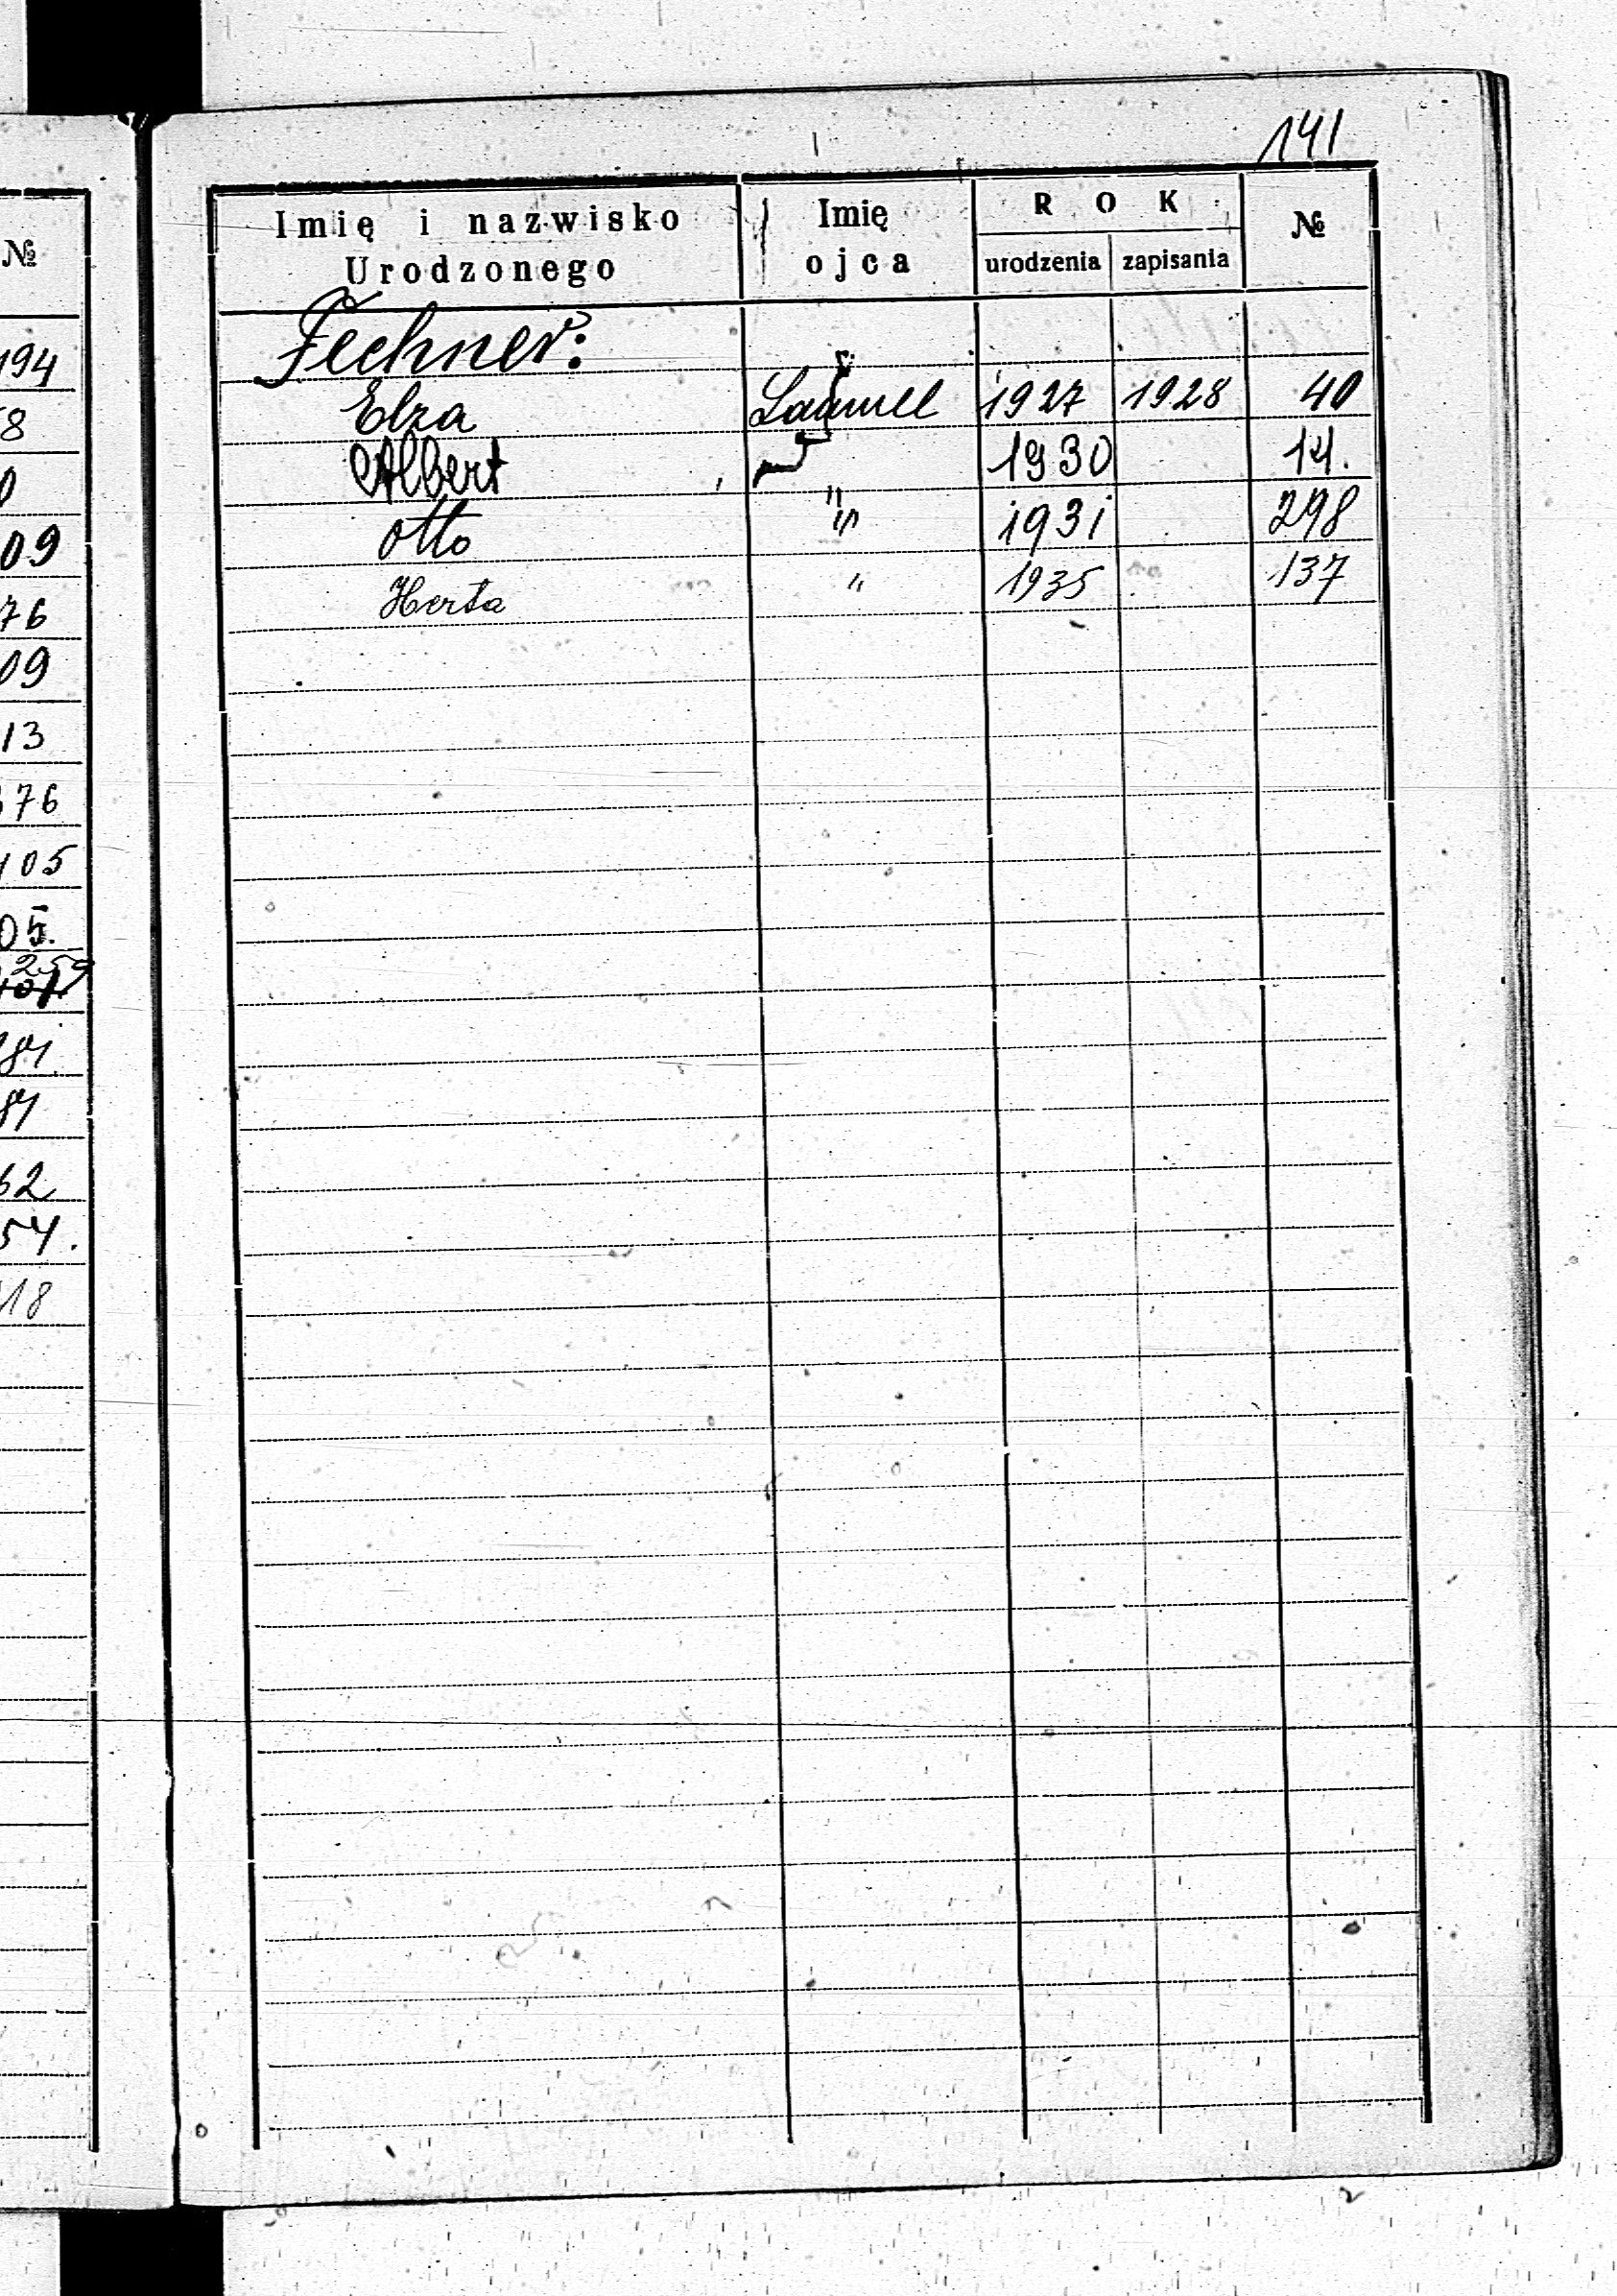 №
194
8
0
09
76
09
13
376
105
05.
259
101
84.
84
62
54.
118
141
Imię i nazwisko Urodzonego Imię ojca ROK urodzenia zapisania №
Fechner:
Elza Samuel 1927 1928 40
Albert " 1930 14.
Otto " 1931 298
Herta " 1935 137